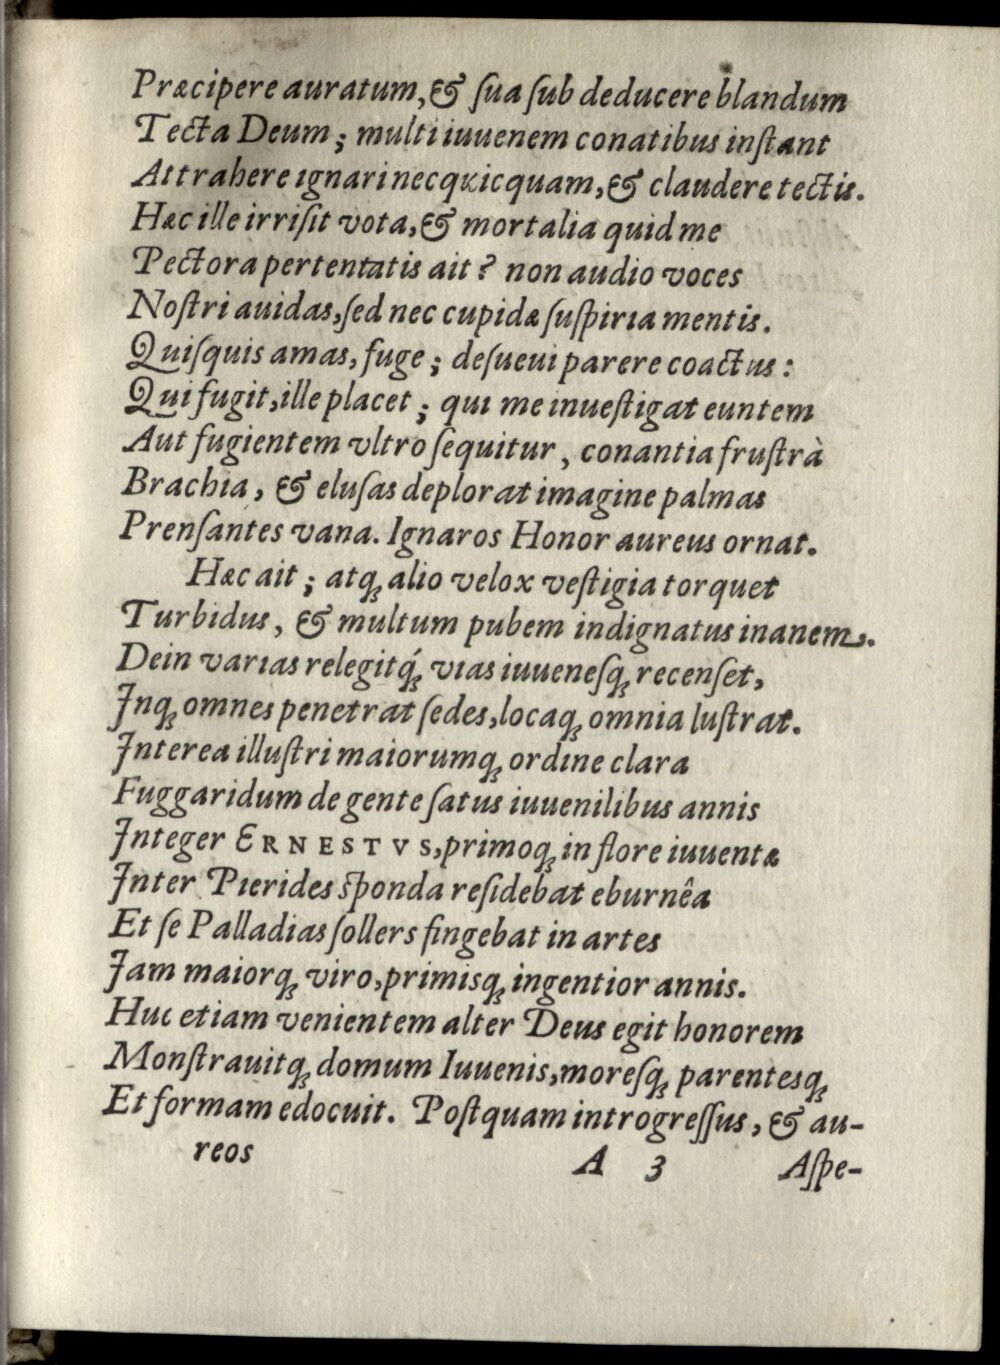 Præcipere auratum, & ſua ſub deducere blandum
Tecta Deum; multi iuuenem conatibus inſtant
Attrahere ignari nec quicquam, & claudere tectis.
Hæc ille irriſit vota, & mortalia quid me
Pectora pertentatis ait? non audio voces
Noſtri auidas, ſed nec cupidæ ſuſpiria mentis.
Quiſquis amas, fuge; deſueui parere coactus:
Qui fugit, ille placet; qui me inueſtigat euntem
Aut fugientem vltro ſequitur, conantia fruſtrà
Brachia, & eluſas deplorat imagine palmas
Prenſantes vana. Ignaros Honor aureus ornat.
Hæc ait; atq; alio velox veſtigia torquet
Turbidus, & multum pubem indignatus inanem.
Dein varias relegitq́; vias iuueneſq; recenſet,
Inq; omnes penetrat ſedes, locaq; omnia luſtrat.
Interea illuſtri maiorumq; ordine clara
Fuggaridum de gente ſatus iuuenilibus annis
Integer ERNESTVS, primoq; in flore iuuentæ
Inter Pierides ſponda reſidebat eburnêa
Et ſe Palladias ſollers fingebat in artes
Jam maiorq; viro, primisq; ingentior annis.
Huc etiam venientem alter Deus egit honorem
Monſtrauitq; domum Iuuenis, moreſq; parentesq;
Et formam edocuit. Poſtquam introgreſſus, & au-
reos A 3 Aſpe-